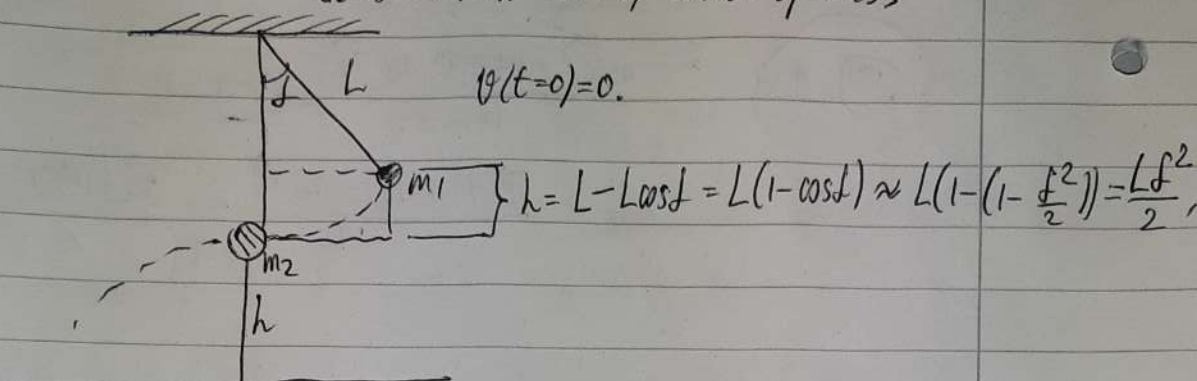 α L
ϑ(t=0)=0.
m1
h = L - Lcosα = L(1-cosα) ≈ L(1-(1-α²/2)) = Lα²/2,
m2
h